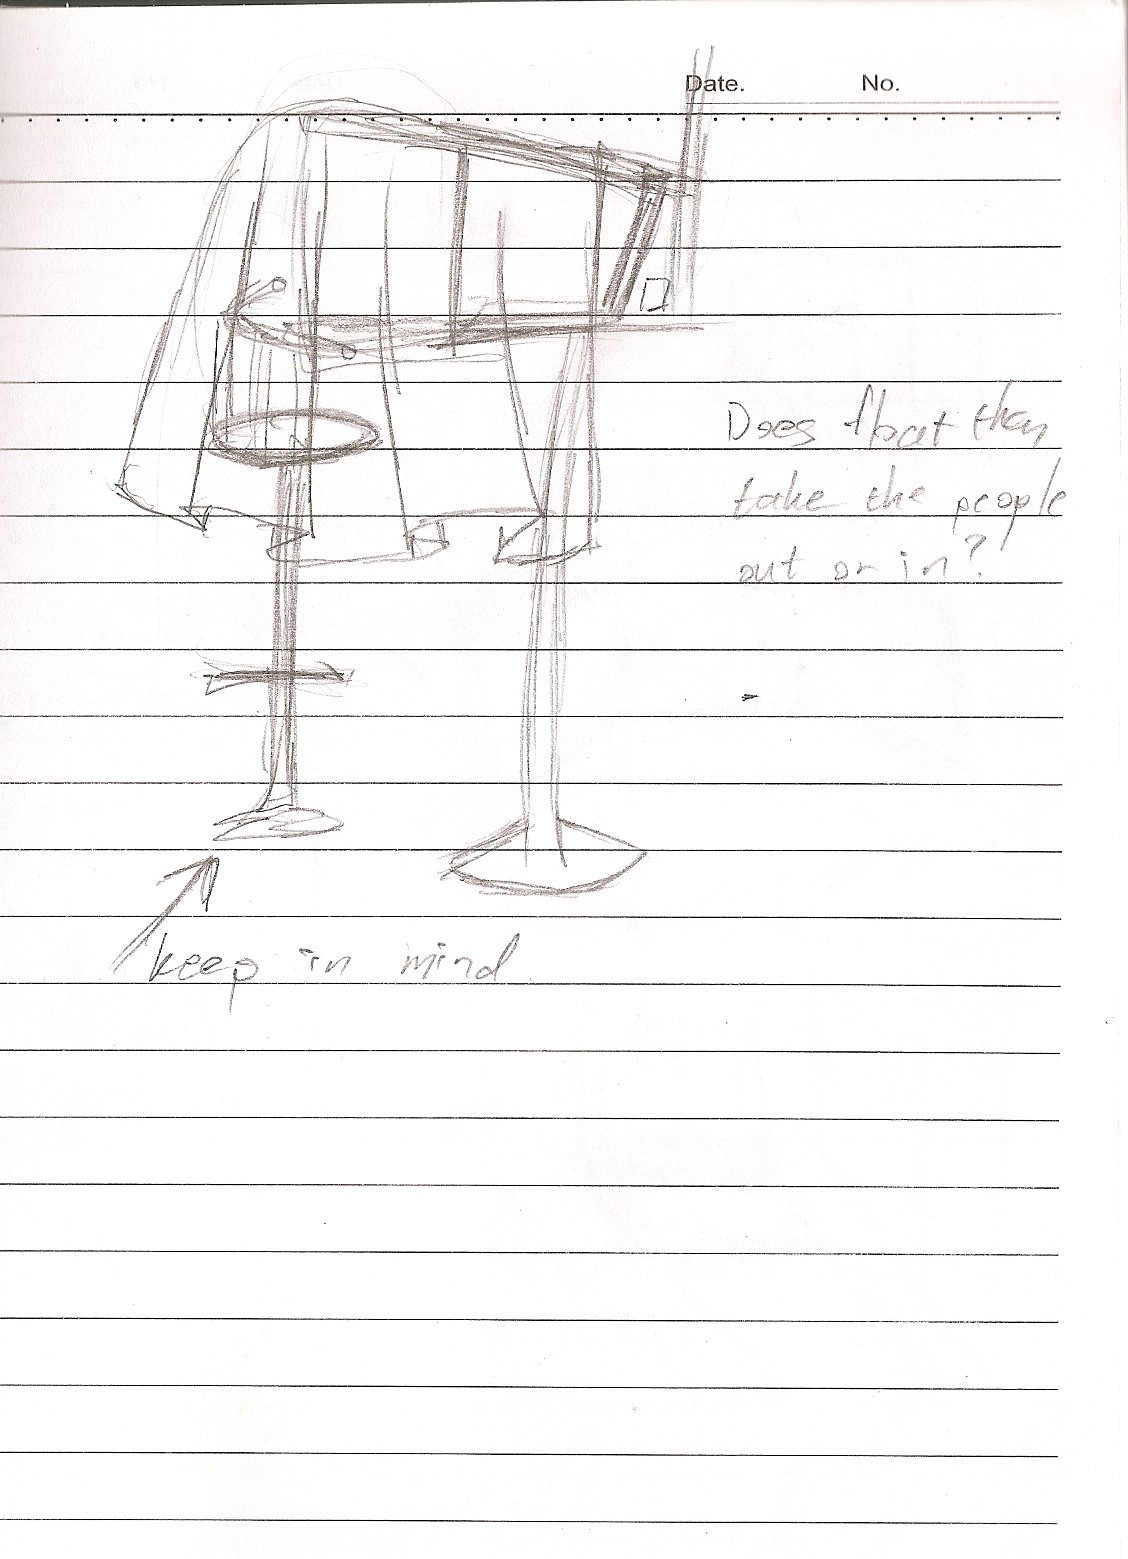 Date. No.
Does float than
take the people
out or in?
keep in mind